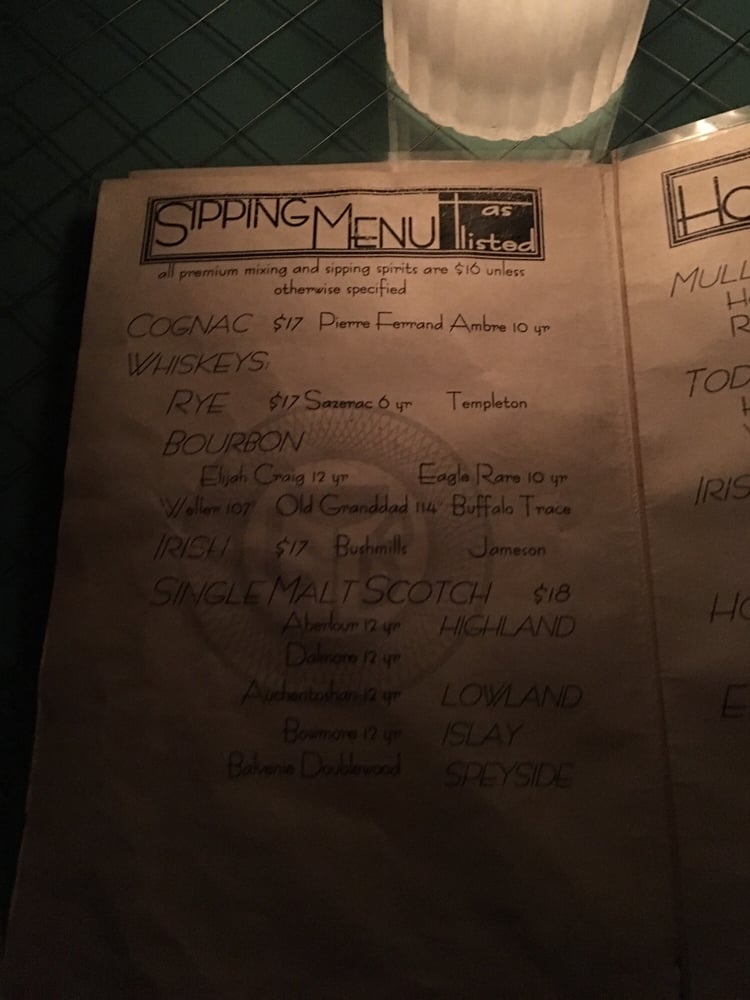 SIPPING MENU as listed
all premium mixing and sipping spirits are $16 unless
otherwise specified
COGNAC $17 Pierre Ferrand Ambre 10 yr
WHISKEYS:
RYE $17 Sazerac 6 yr Templeton
BOURBON
Elijah Craig 12 yr Eagle Rare 10 yr
Weller 107 Old Granddad 114 Buffalo Trace
IRISH $17 Bushmills Jameson
SINGLE MALT SCOTCH $18
Aberlour 12 yr HIGHLAND
Dalmore 12 yr
Auchentoshan 12 yr LOWLAND
Bowmore 12 yr ISLAY
Balvenie Doublewood SPEYSIDE
HO
MULL
H
R
TOD
IRIS
HO
E